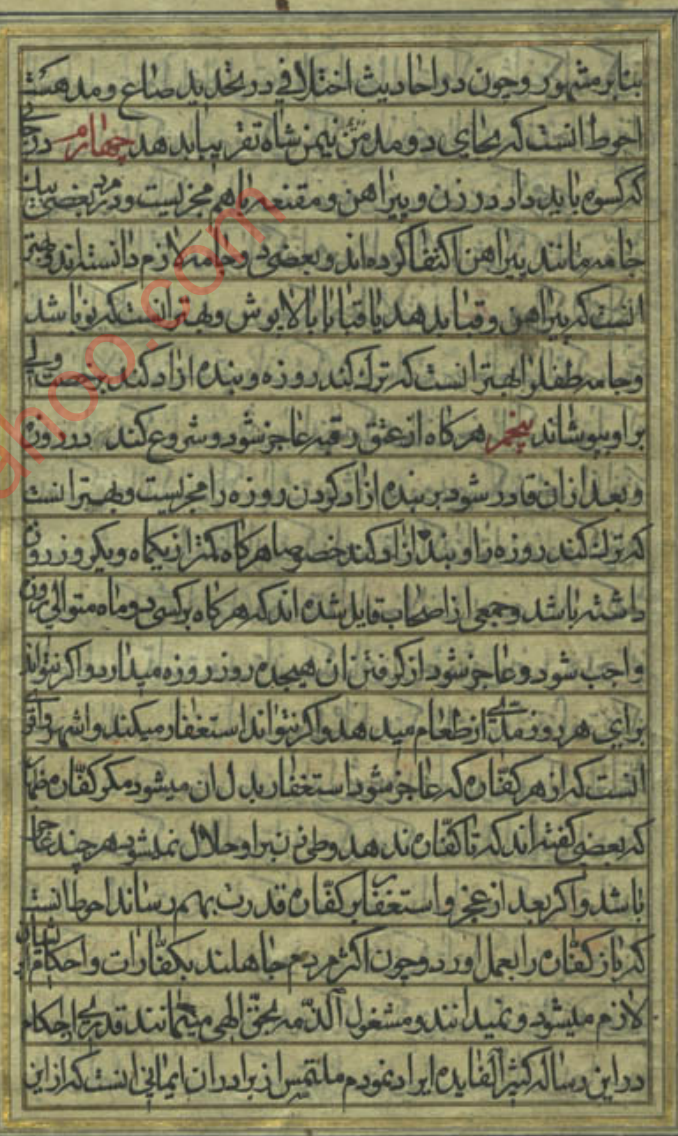 بنابر مشهور و چون در احادیث اختلافی در تحدید صاع و مد هست
احوط انست که بجای دو مد من نیمن شاه تقریبا بدهد چهارم در
که کسوه باید داد در زن و پیراهن و مقنعه باهم مجزیست و در مرد بعضی بیک
جامه مانند پیراهن اکتفا کرده اند و بعضی دو جامه لازم دانسته اند و بهتر
انست که پیراهن و قبا بدهد یا قبا با بالاپوش و بهتر انست که نو باشد
و جامه طفل را بهتر انست که ترک کند روزه و بنده ازاد کند برخصت ولی
براو بپوشاند پنجم هرگاه از عتق رقبه عاجز شود و شروع کند در روزه
و بعد از ان قادر شود بر بنده ازاد کردن روزه را مجزیست و بهتر انست
که ترک کند روزه را و بنده ازاد کند خصوصا هرگاه کمتر از یکماه و یکروز روزه
داشته باشد و جمعی از اصحاب قایل شده اند که هرگاه بر کسی دو ماه متوالی روزه
واجب شود و عاجز شود از گرفتن ان هیجده روز روزه میدارد و اگر نتواند
برای هر روز مدی از طعام میدهد و اگر نتواند استغفار میکند و اشهر و اقوی
انست که از هر کفاره که عاجز شود استغفار بدل ان میشود مگر کفاره ظهار
که بعضی گفته اند که تا کفاره ندهد وطی زن براو حلال نمیشود هر چند عاجز
باشد و اگر بعد از عجز و استغفار بر کفاره قدرت بهم رساند احوط انست
که باز کفاره را بعمل اورد و چون اکثر مردم جاهلند بکفارات و احکام ان بایشان
لازم میشود و نمیدانند و مشغول الذمه بحق الهی میمانند قدری احکام
در این رساله کثیر الفایده ایراد نمودم ملتمس از برادران ایمانی انست که از این